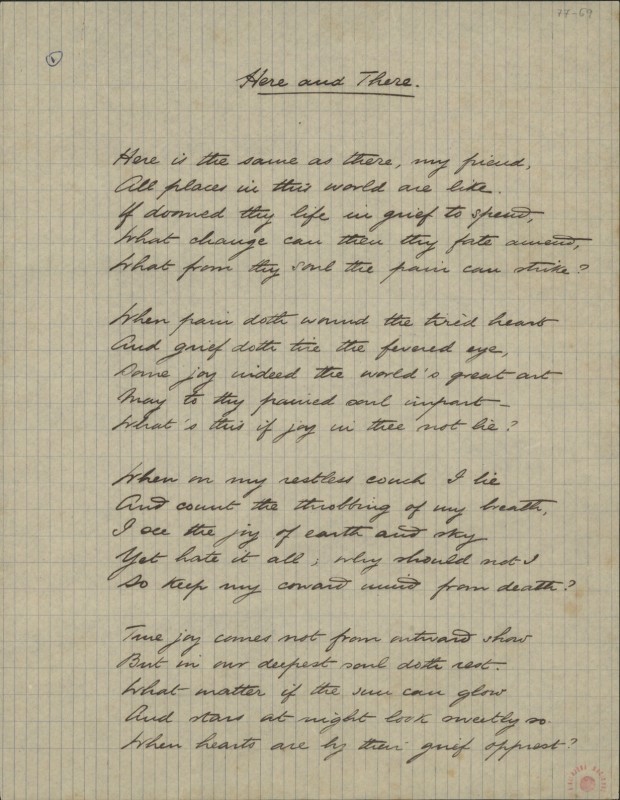 77-69
1
Here and There.
Here is the same as there, my friend,
All places in this world are like.
If doomed thy life in grief to spend,
What change can then thy fate amend,
What from thy soul the pain can strike?
When pain doth wound the tirèd heart
And grief doth tire the fevered eye,
Some joy indeed the world's great art
May to thy pained soul impart –
What's this if joy in thee not lie?
When on my restless couch I lie
And count the throbbing of my breath,
I see the joy of earth and sky
Yet hate it all; why should not I
So keep my coward mind from death?
True joy comes not from outward show
But in our deepest soul doth rest.
What matter if the sun can glow
And stars at night look sweetly so
When hearts are by their grief opprest?